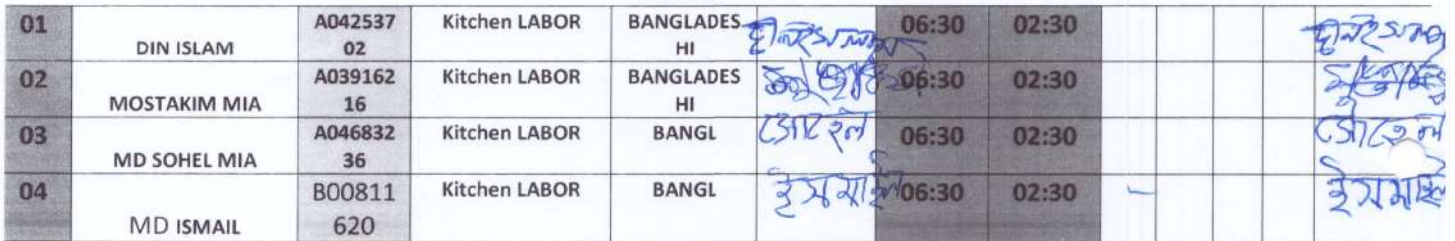 01 DIN ISLAM A04253702 Kitchen LABOR BANGLADESHI 06:30 02:30
02 MOSTAKIM MIA A03916216 Kitchen LABOR BANGLADESHI 06:30 02:30
03 MD SOHEL MIA A04683236 Kitchen LABOR BANGL সোহেল 06:30 02:30 সোহেল
04 MD ISMAIL B00811620 Kitchen LABOR BANGL ইসমাইল 06:30 02:30 ইসমাইল